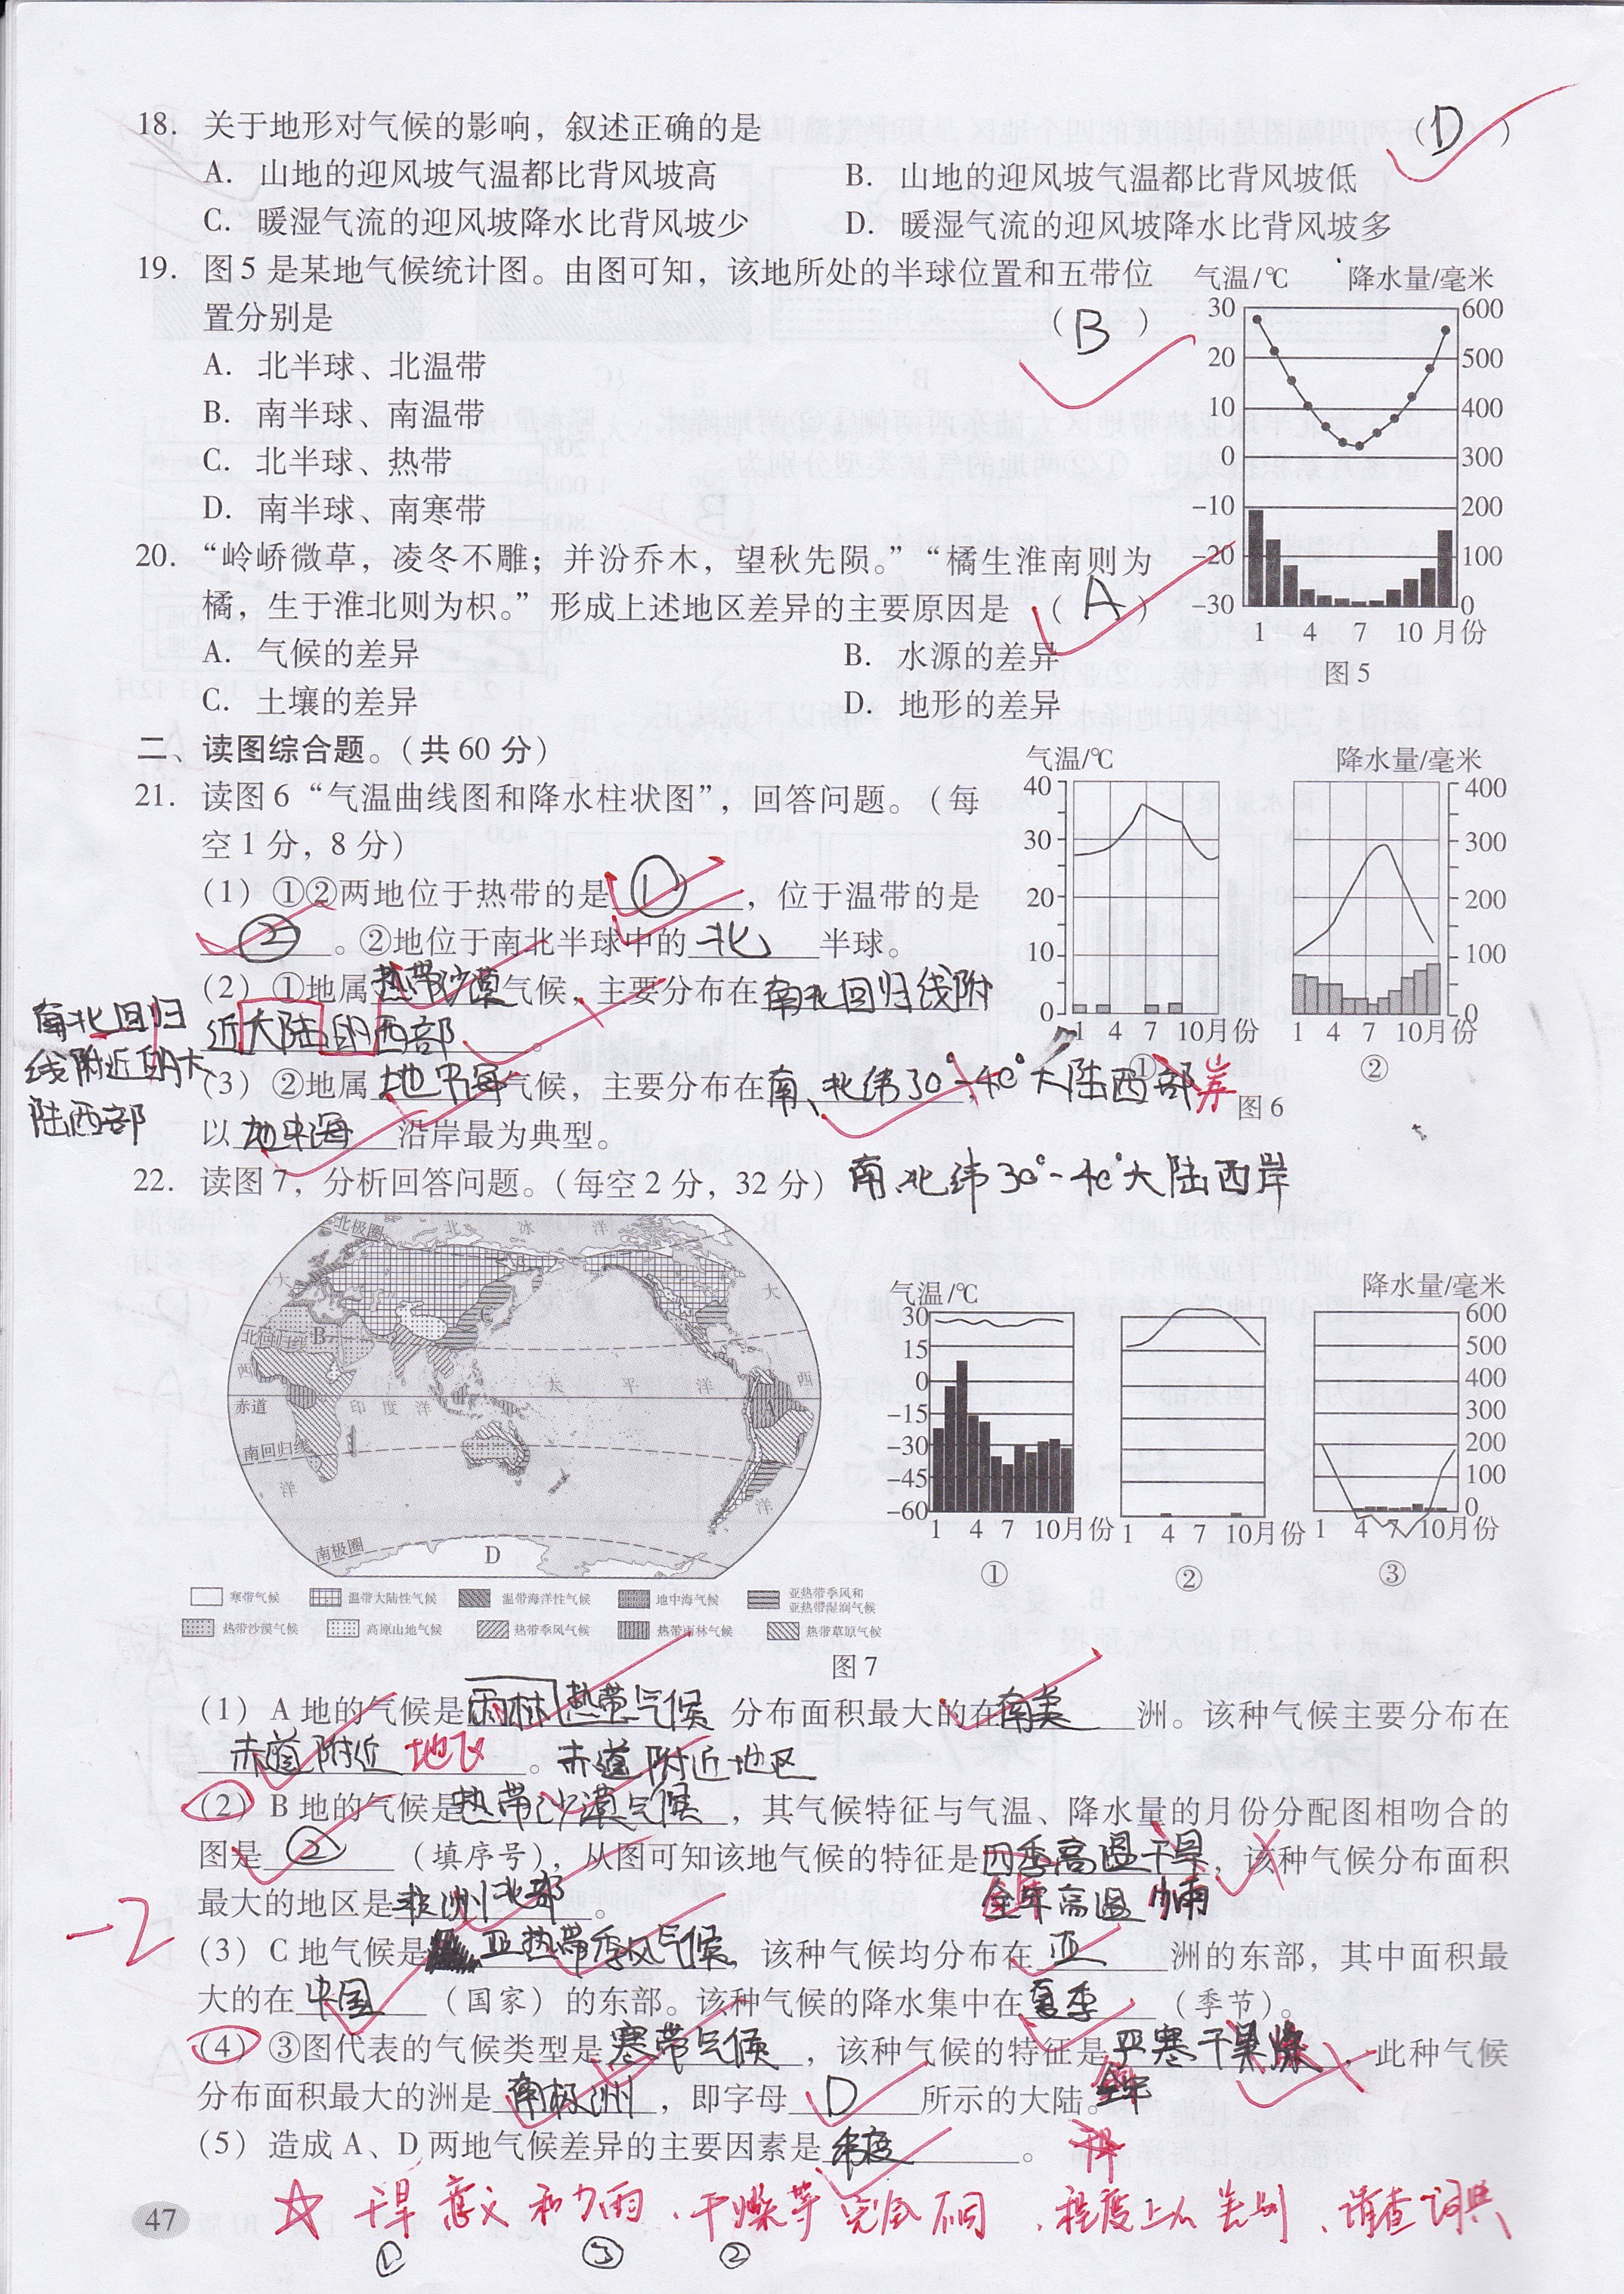 18. 关于地形对气候的影响，叙述正确的是 （ D ）
A. 山地的迎风坡气温都比背风坡高 B. 山地的迎风坡气温都比背风坡低
C. 暖湿气流的迎风坡降水比背风坡少 D. 暖湿气流的迎风坡降水比背风坡多
19. 图5是某地气候统计图。由图可知，该地所处的半球位置和五带位
置分别是 （ B ）
A. 北半球、北温带
B. 南半球、南温带
C. 北半球、热带
D. 南半球、南寒带
气温/℃ 降水量/毫米
30 600
20 500
10 400
0 300
-10 200
-20 100
-30 0
1 4 7 10 月份
图5
20. “岭峤微草，凌冬不雕；并汾乔木，望秋先陨。”“橘生淮南则为
橘，生于淮北则为枳。”形成上述地区差异的主要原因是 （ A ）
A. 气候的差异 B. 水源的差异
C. 土壤的差异 D. 地形的差异
二、读图综合题。（共60分）
21. 读图6“气温曲线图和降水柱状图”，回答问题。（每
空1分，8分）
（1）①②两地位于热带的是 ① ，位于温带的是
② 。②地位于南北半球中的 北 半球。
（2）①地属 热带沙漠 气候，主要分布在 南北回归线附
近大陆的西部 。
南北回归
线附近的大
陆西部
（3）②地属 地中海 气候，主要分布在 南、北纬30°-40°大陆西部 岸
以 地中海 沿岸最为典型。
气温/℃ 降水量/毫米
40 400
30 300
20 200
10 100
0 0
1 4 7 10月份 1 4 7 10月份
① ②
图6
22. 读图7，分析回答问题。（每空2分，32分） 南、北纬30°-40°大陆西岸
北极圈 北 冰 洋
大 大
北回归线 B C
西 太 平 洋 西
赤道 印 度 洋 A
南回归线
洋 洋
南极圈 D
寒带气候 温带大陆性气候 温带海洋性气候 地中海气候 亚热带季风和
亚热带湿润气候
热带沙漠气候 高原山地气候 热带季风气候 热带雨林气候 热带草原气候
气温/℃ 降水量/毫米
30 600
15 500
0 400
-15 300
-30 200
-45 100
-60 0
1 4 7 10月份 1 4 7 10月份 1 4 7 10月份
① ② ③
图7
（1）A地的气候是 雨林 热带气候 分布面积最大的在 南美 洲。该种气候主要分布在
赤道附近 地区 。赤道附近地区
（2）B地的气候是 热带沙漠气候 ，其气候特征与气温、降水量的月份分配图相吻合的
图是 ② （填序号），从图可知该地气候的特征是 四季高温干旱 ，该种气候分布面积
最大的地区是 非洲北部 。 全年高温少雨
-2
（3）C地气候是 亚热带季风气候 ，该种气候均分布在 亚 洲的东部，其中面积最
大的在 中国 （国家）的东部。该种气候的降水集中在 夏季 （季节）。
（4）③图代表的气候类型是 寒带气候 ，该种气候的特征是 严寒干燥 ，此种气候
分布面积最大的洲是 南极洲 ，即字母 D 所示的大陆。 全年
（5）造成A、D两地气候差异的主要因素是 纬度 。
☆ 干旱意义和少雨、干燥等完全不同、程度上有差别、请查词典
① ③ ②
47